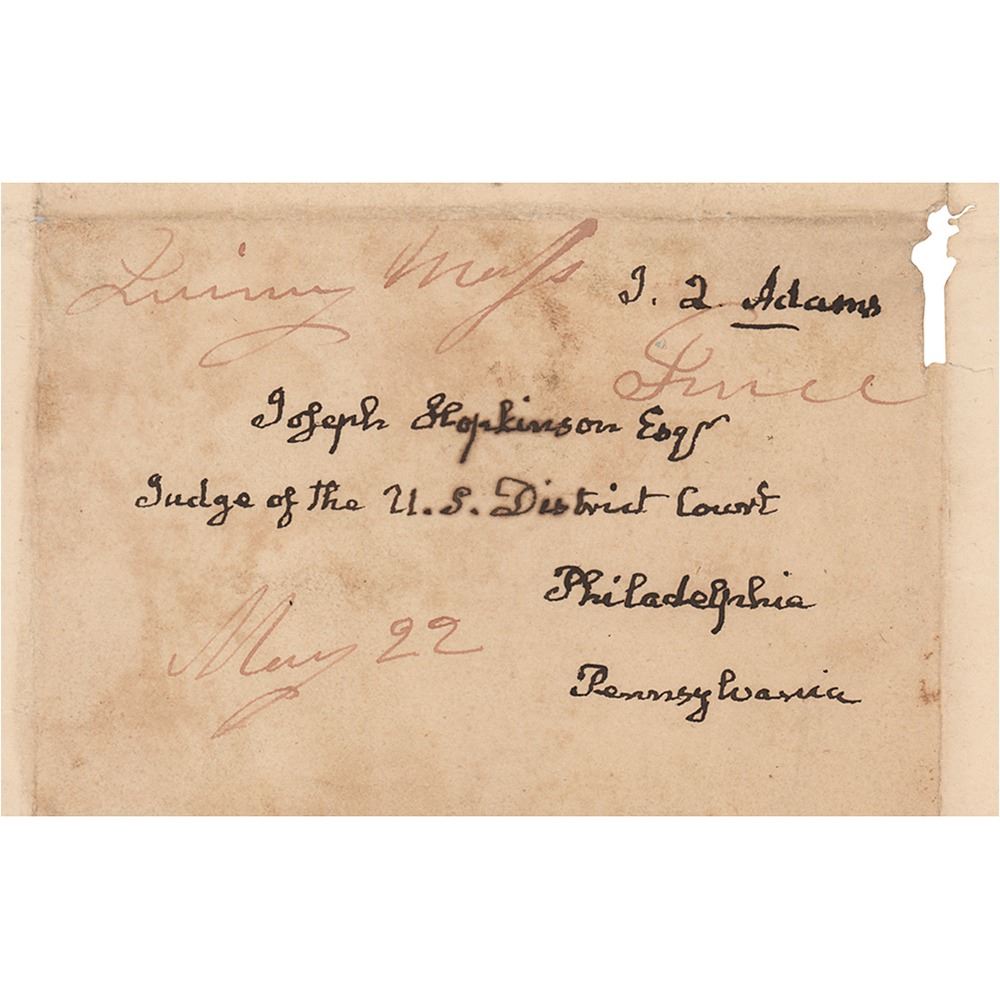 Quincy Mass
J. Q Adams
Free
Joseph Hopkinson Esqr
Judge of the U.S. District Court
Philadelphia
May 22
Pennsylvania